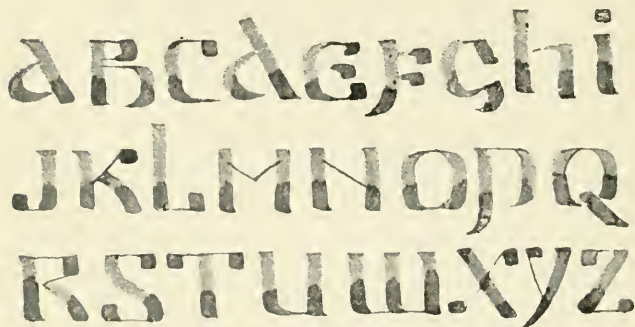 aBCdEFGhi
JKLMNOPQ
RSTUW.XYZ